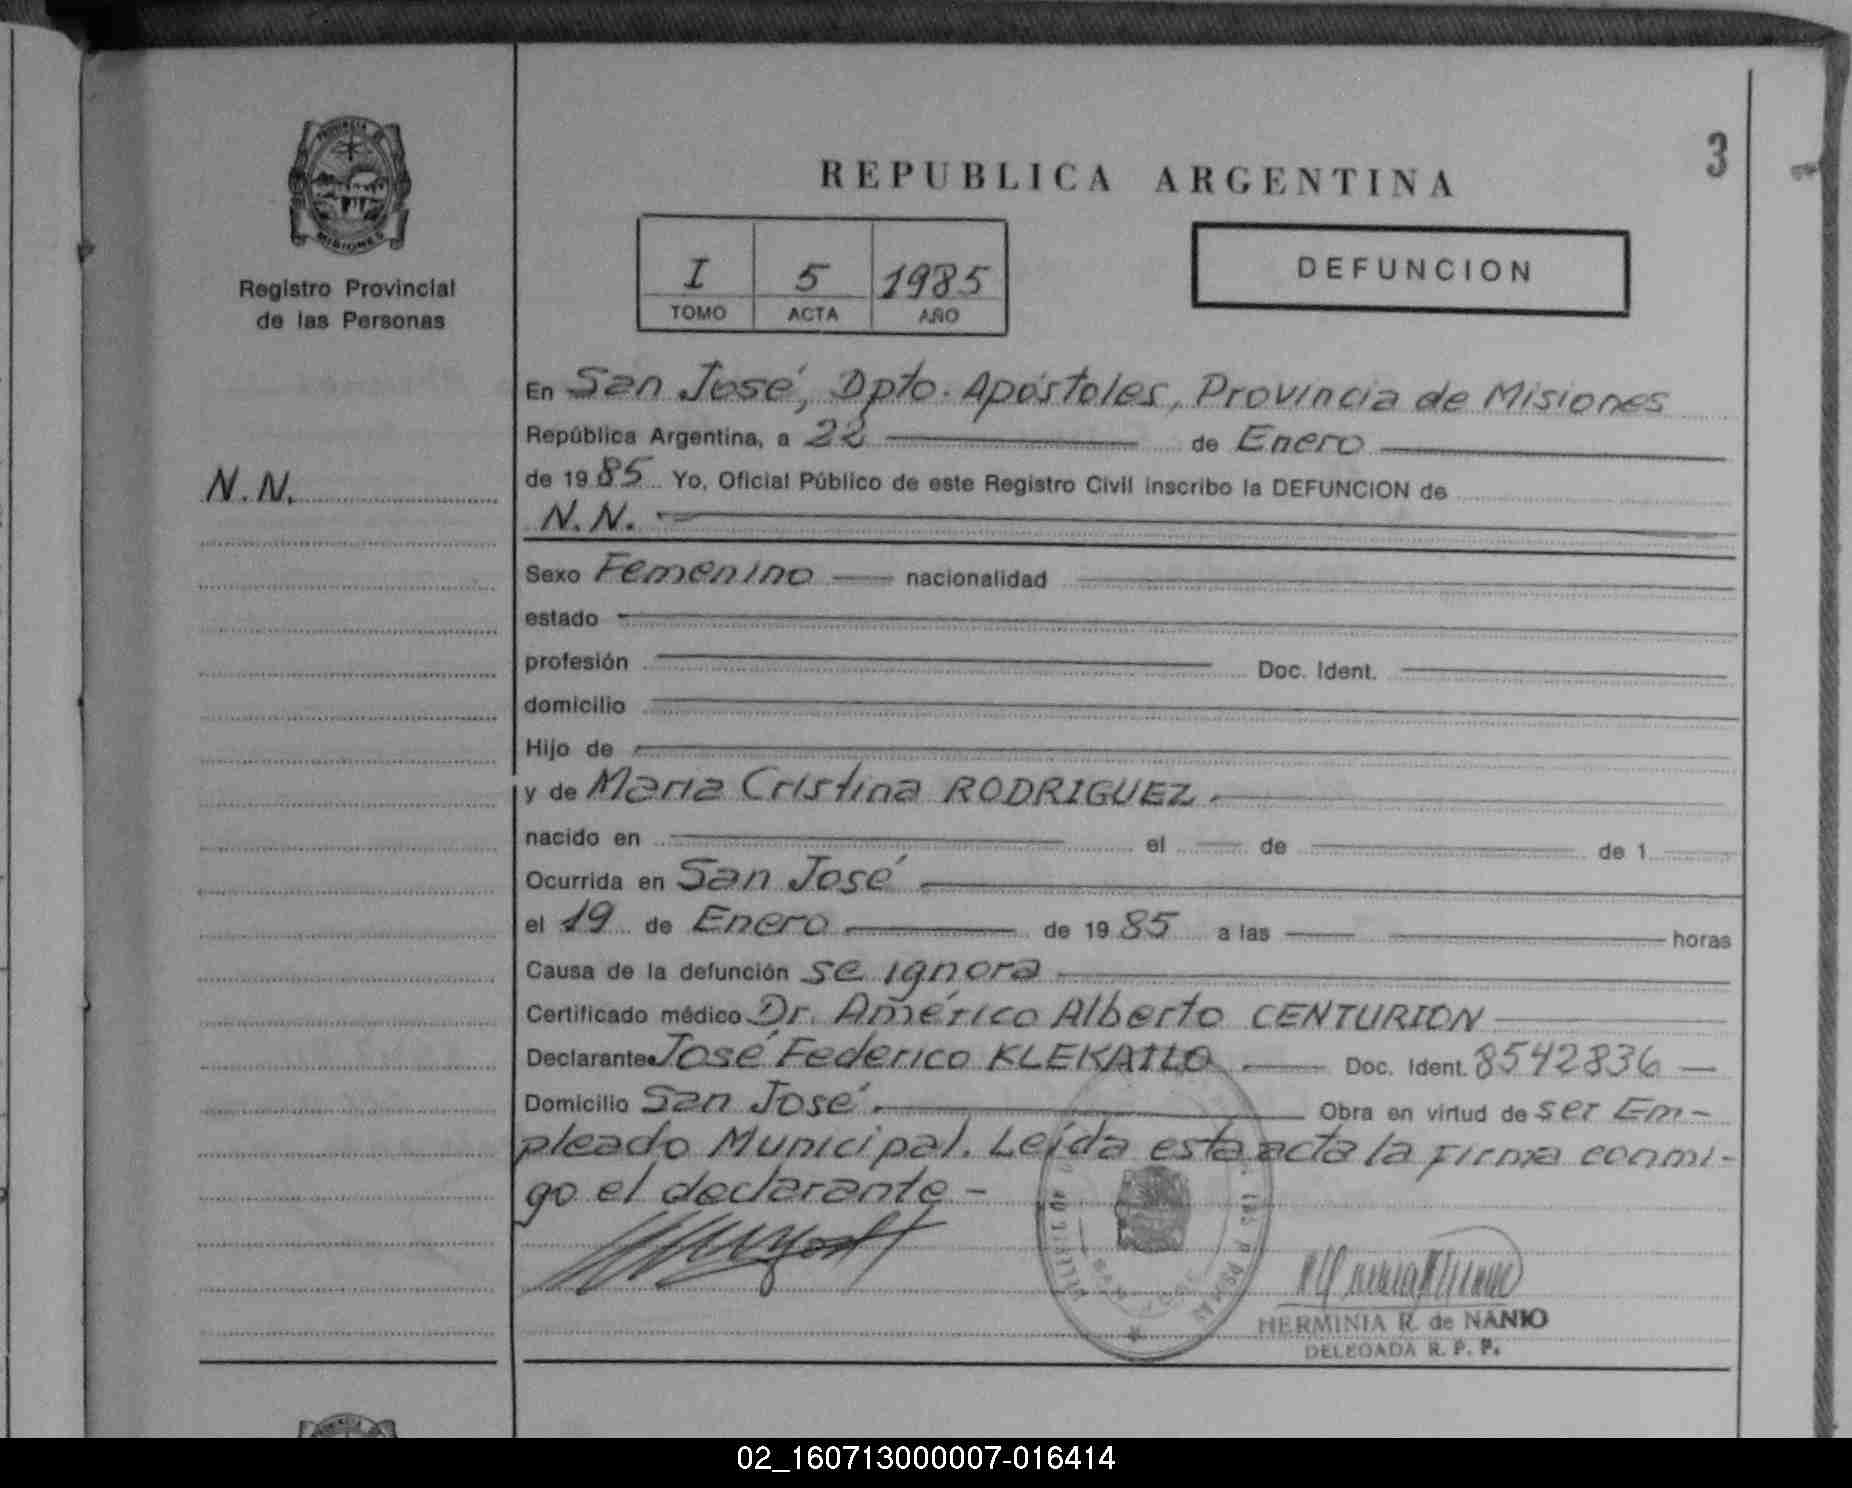 PROVINCIA DE
MISIONES
Registro Provincial
de las Personas
N.N.
3
REPUBLICA ARGENTINA
I 5 1985
TOMO ACTA AÑO
DEFUNCION
En San José, Dpto. Apóstoles, Provincia de Misiones
República Argentina, a 22 de Enero
de 1985 Yo, Oficial Público de este Registro Civil inscribo la DEFUNCION de
N.N.
Sexo Femenino nacionalidad
estado
profesión Doc. Ident.
domicilio
Hijo de
y de María Cristina RODRIGUEZ.
nacido en el de de 1
Ocurrida en San José
el 19 de Enero de 1985 a las horas
Causa de la defunción se ignora
Certificado médico Dr. Américo Alberto CENTURION
Declarante José Federico KLEKAILO Doc. Ident. 8542836
Domicilio San José. Obra en virtud de ser Em-
pleado Municipal. Leída esta acta la firma conmi-
go el declarante -
HERMINIA R. de NANIO
DELEGADA R. P. P.
02_160713000007-016414